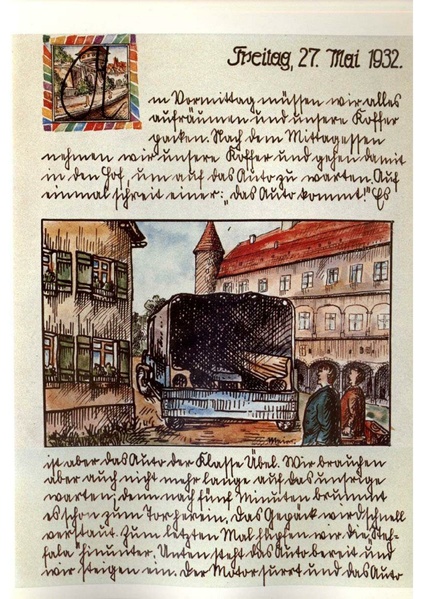 Freitag, 27. Mai 1932.
Am Vormittag müssen wir alles
aufräumen und unsere Koffer
packen. Nach dem Mittagessen
nehmen wir unsere Koffer und gehen damit
in den Hof, um auf das Auto zu warten. Auf
einmal schreit einer: „das Auto kommt!" Es
Maier
ist aber das Auto der Klasse Übel. Wir brauchen
aber auch nicht mehr lange auf das unsrige
warten, denn nach fünf Minuten brummt
es schon zum Tor herein, das Gepäck wird schnell
verstaut. Zum letzten Mal hüpfen wir die „Stef-
fala" hinunter. Unten steht das Auto bereit und
wir steigen ein. der Motor surrt und das Auto